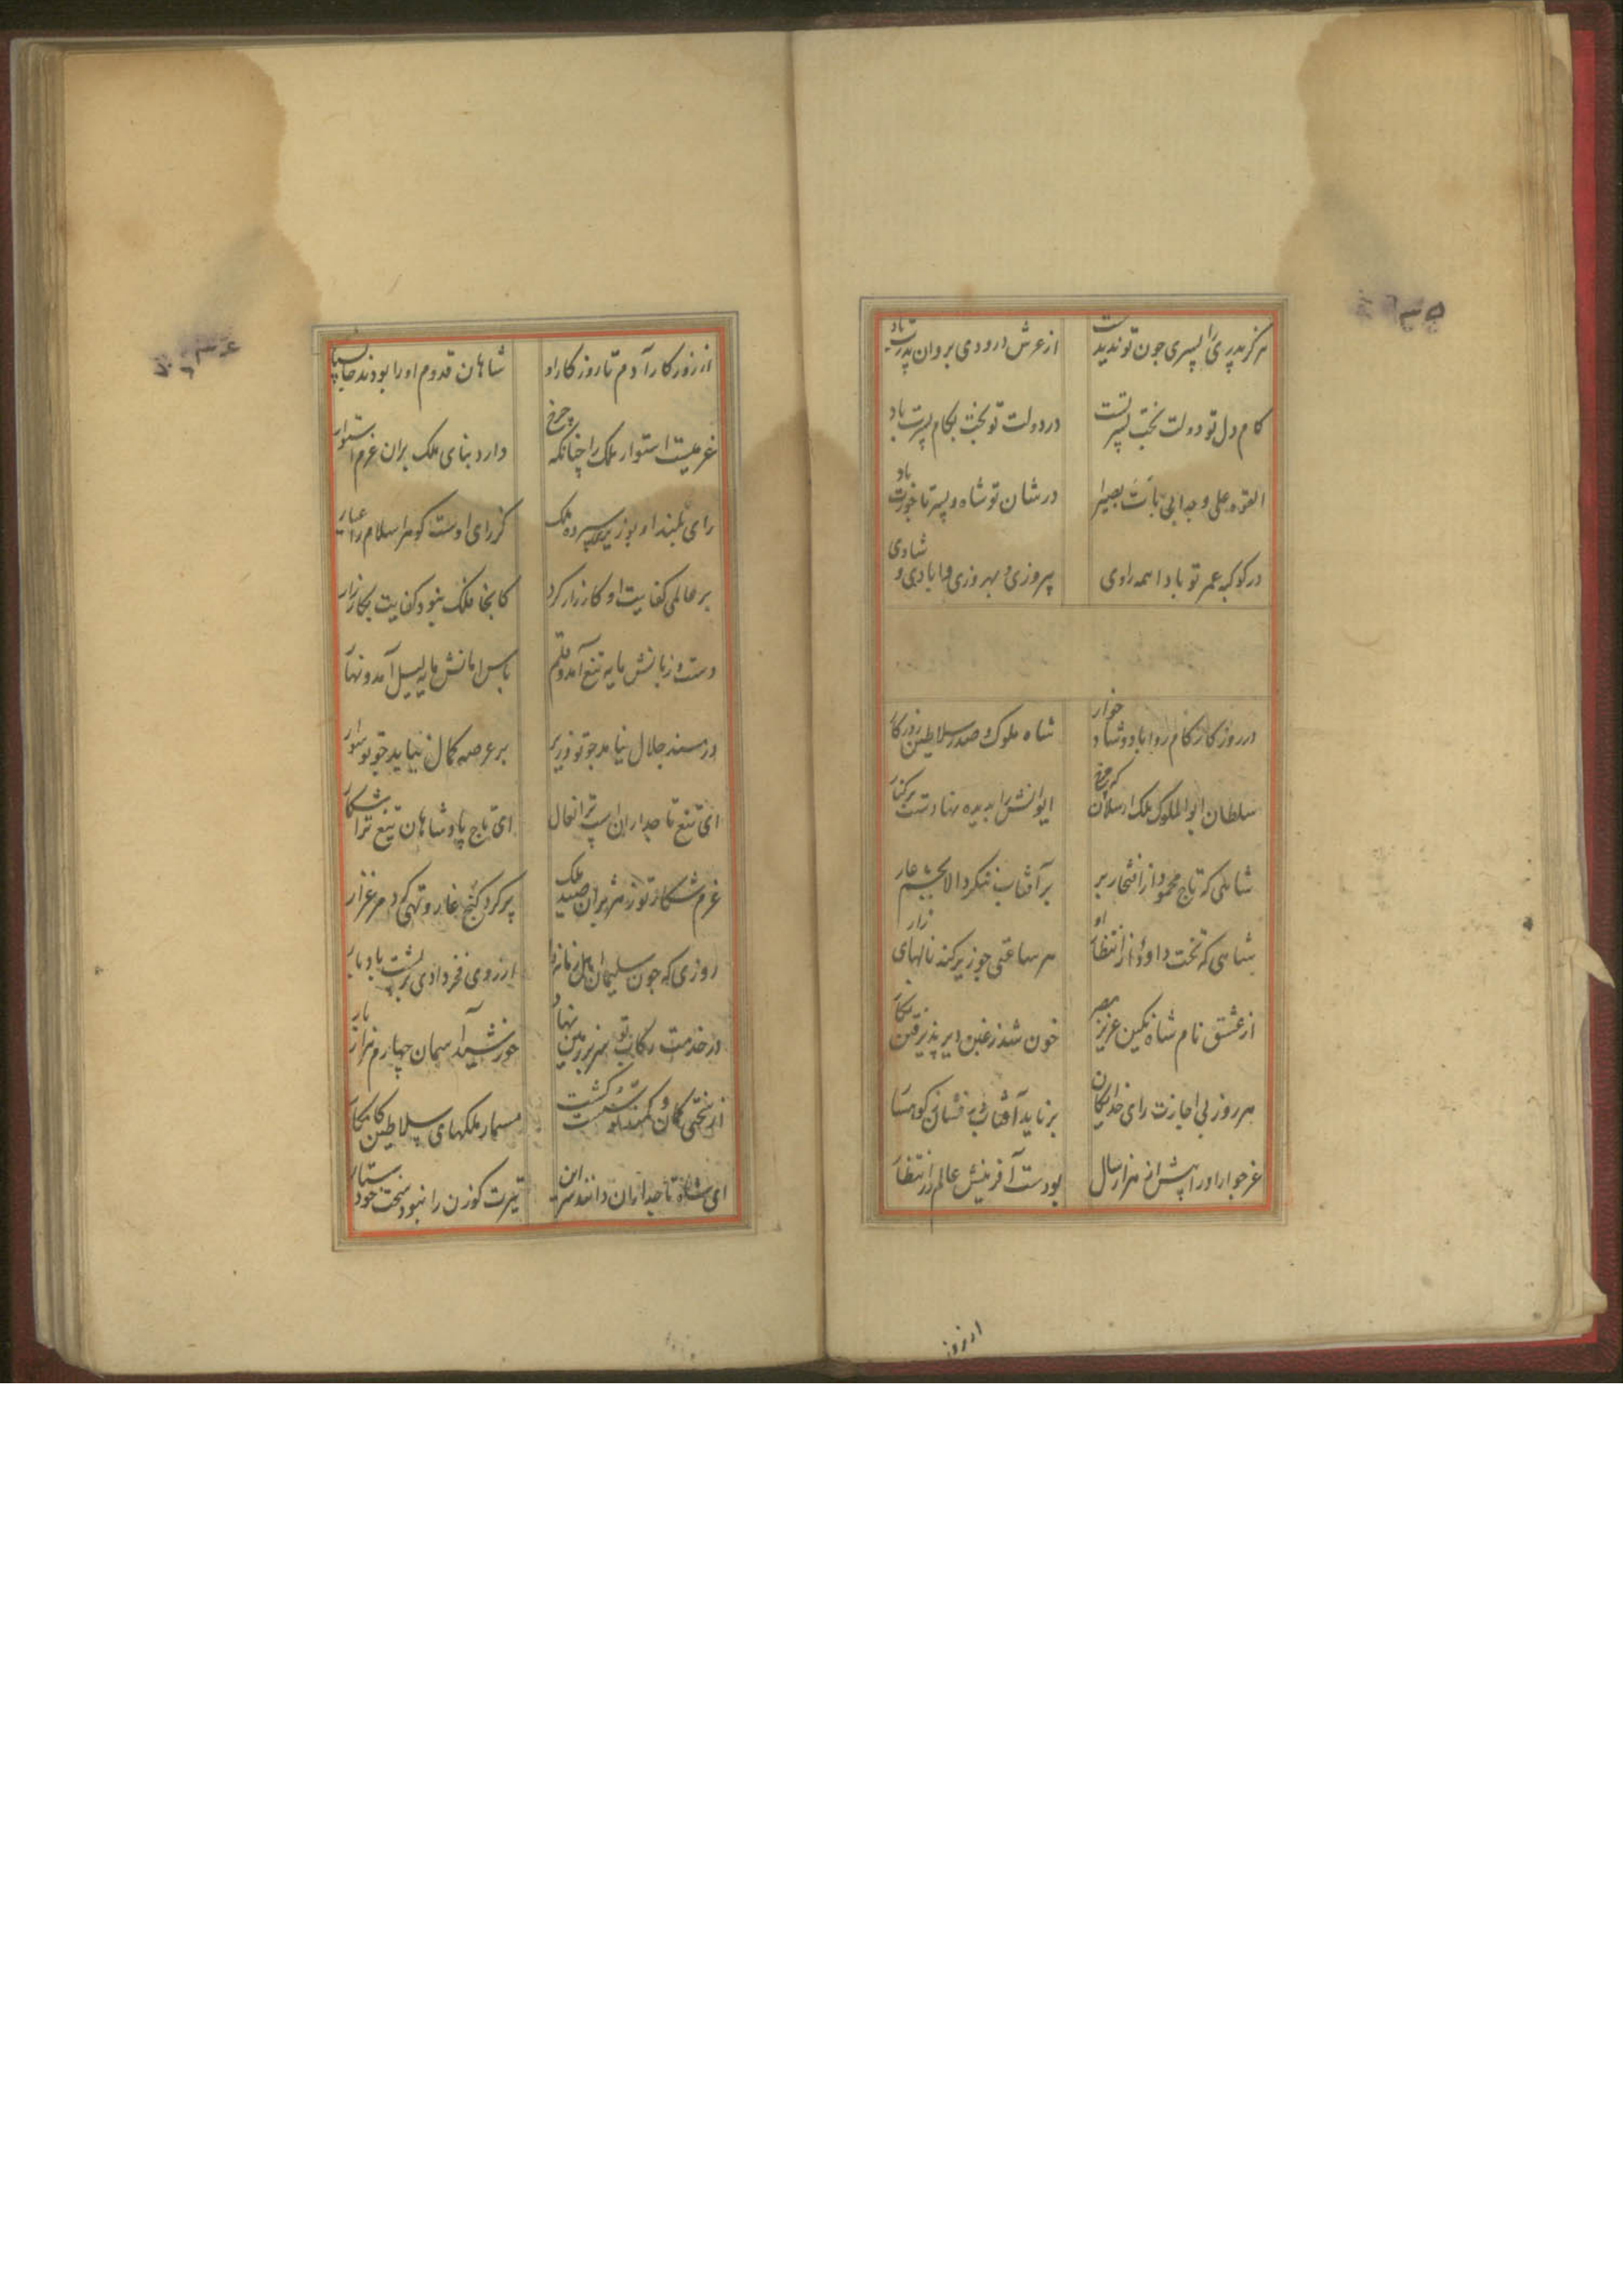 هرگز پدری را پسری چون تو ندیدست
از عرش درودی بروان پدرت باد
کام دل تو دولت بخت پسر تست
در دولت تو بخت بکام پسرت باد
در شان تو شاه و پسر تاجورت باد
در کوکبه عمر تو بادا همه رادی
پیروزی و بهروزی و آبادی و شادی
در روزگار کام روا باد و شاد خوار
شاه ملوک و صدر سلاطین روزگار
سلطان ابوالملوک ملک ارسلان که چرخ
ایوانش را بدیده نهادست بر کنار
شاهی که تاج محمود از افتخار بر
بر آفتاب ننگرد الا بچشم عار
شاهی که تخت داود از انتظار او
هر ساعتی چو زیر کند نالهای زار
از عشق نام شاه نگین عزیز مصر
خون شد ز غبن دیر پذیرفتن نگار
هر روز بی اجازت رای خدایگان
بر ناید آفتاب درفشان ز کوهسار
بودست آفرینش عالم در انتظار
از روز
از روزگار آدم تا روزگار او
شاهان قدوم او را بودند جان سپار
عزمیست استوار ملک را چنانکه چرخ
دارد بنای ملک بران عزم استوار
رای بلند او بوزیری سپرده ملک
کز رای اوست گوهر اسلام را عیار
بر عالمی کفایت او کارزار کرد
کانجا ملک نبود کفایت بکارزار
دست و زبانش مایه تیغ آمد و قلم
باس و امانش مایه لیل آمد و نهار
در مسند جلال نیامد چو تو وزیر
بر عرصه کمال نیاید چو تو سوار
ای تیغ تاجداران اسپ ترا نعال
ای تاج پادشاهان تیغ ترا شکار
عزم شکار تو ز هژبران صید ملک
پر کرد کنج غار و تهی کرد مرغزار
روزی که چون سلیمان اهل زمانه را
از روی فخر دادی بر پشت باد بار
در خدمت رکاب تو سر بر زمین نهاد
خورشید آسمان چهارم هزار بار
از سختی کمان و کمند تو سست گشت
مسمار ملکهای سلاطین کامکار
ای شاه تاجداران دانند سر این
تیرت گوزن را نبود سخت خواستار